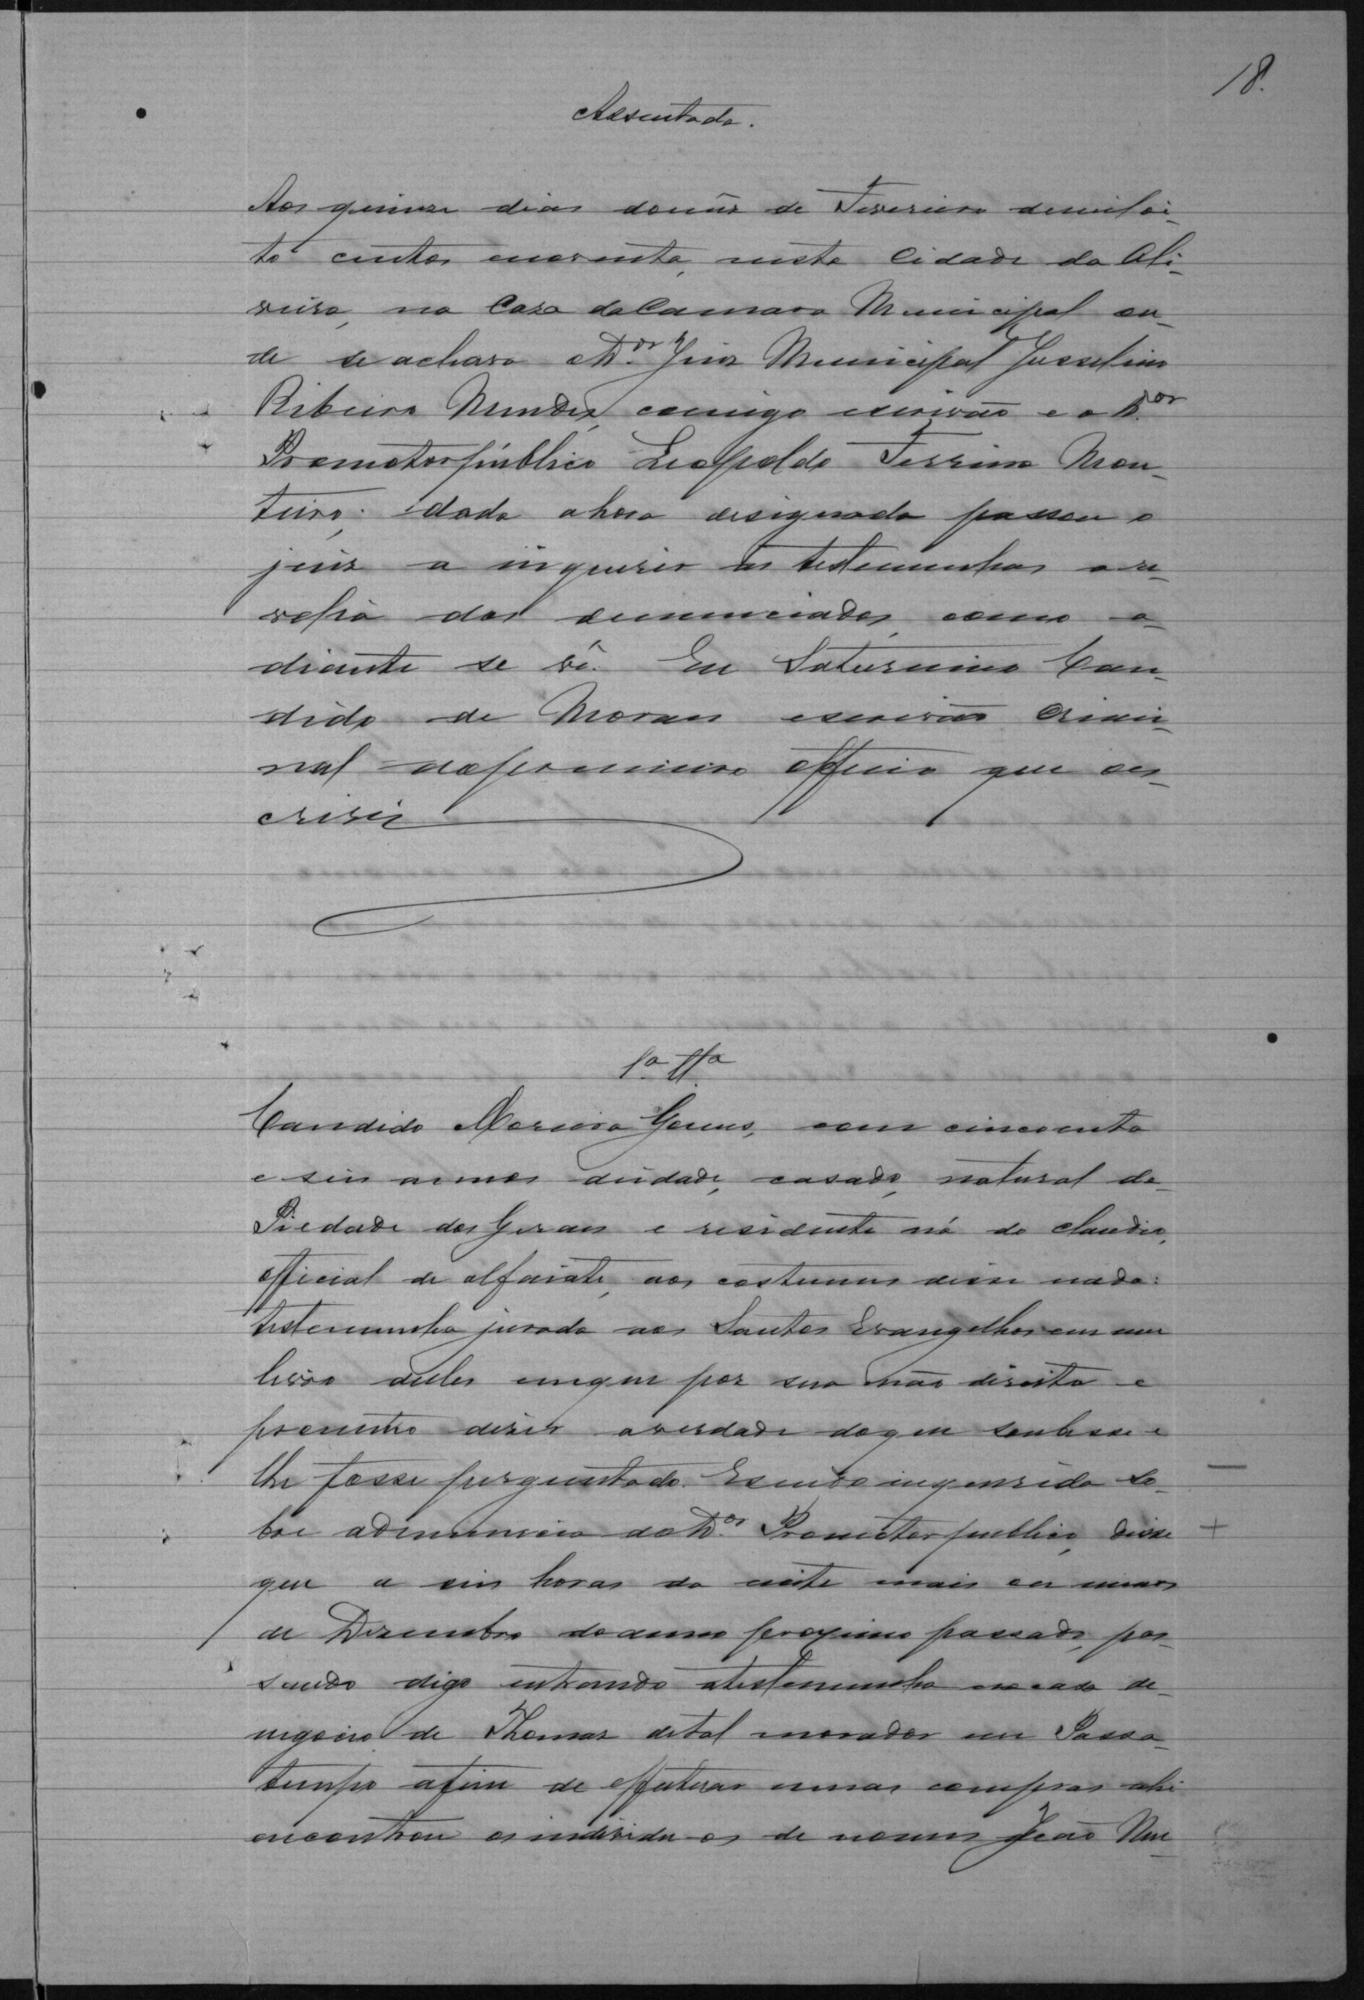 18.
Assentada.
Aos quinze dias do mez de Fevereiro de mil oi-
to centos e noventa, nesta Cidade da Oli-
veira, na Casa da Camara Municipal on-
de se achava o D.or Juiz Municipal Josselino
Ribeiro Mendes, comigo escrivão e o D.or
Promotor públlico Leopoldo Ferreira Mon-
teiro; e dada a hora designada passou o
juiz a inquerir as testemunhas a re-
velia dos denunciados, como a-
diante se vê. Eu Saturnino Can-
dido de Moraes escrivão Crimi-
nal do primeiro officio que es-
crivi
1.a Tt.a
Candido Moreira Gomes, com cincoenta
e seis annos de idade, casado, natural de
Piedade dos Geraes e residente no do Claudio,
official de alfaiate, aos costumes disse nada:
testemunha jurada aos Santos Evangelhos em um
livro delles em que poz sua mão direita e
prometteo dizer a verdade do que soubesse e
lhe fosse perguntado. E sendo inquerida so-
bre a denuncia do D.or Promotor publico, disse
que a seis horas da noite mais ou menos
de Dezembro do anno proximo passado, pas-
sando digo entrando a testemunha na casa de
negocio de Thomaz de tal morador em Passa-
tempo afim de effectuar umas compras ahi
encontrou os individuos de nomes João Nu-